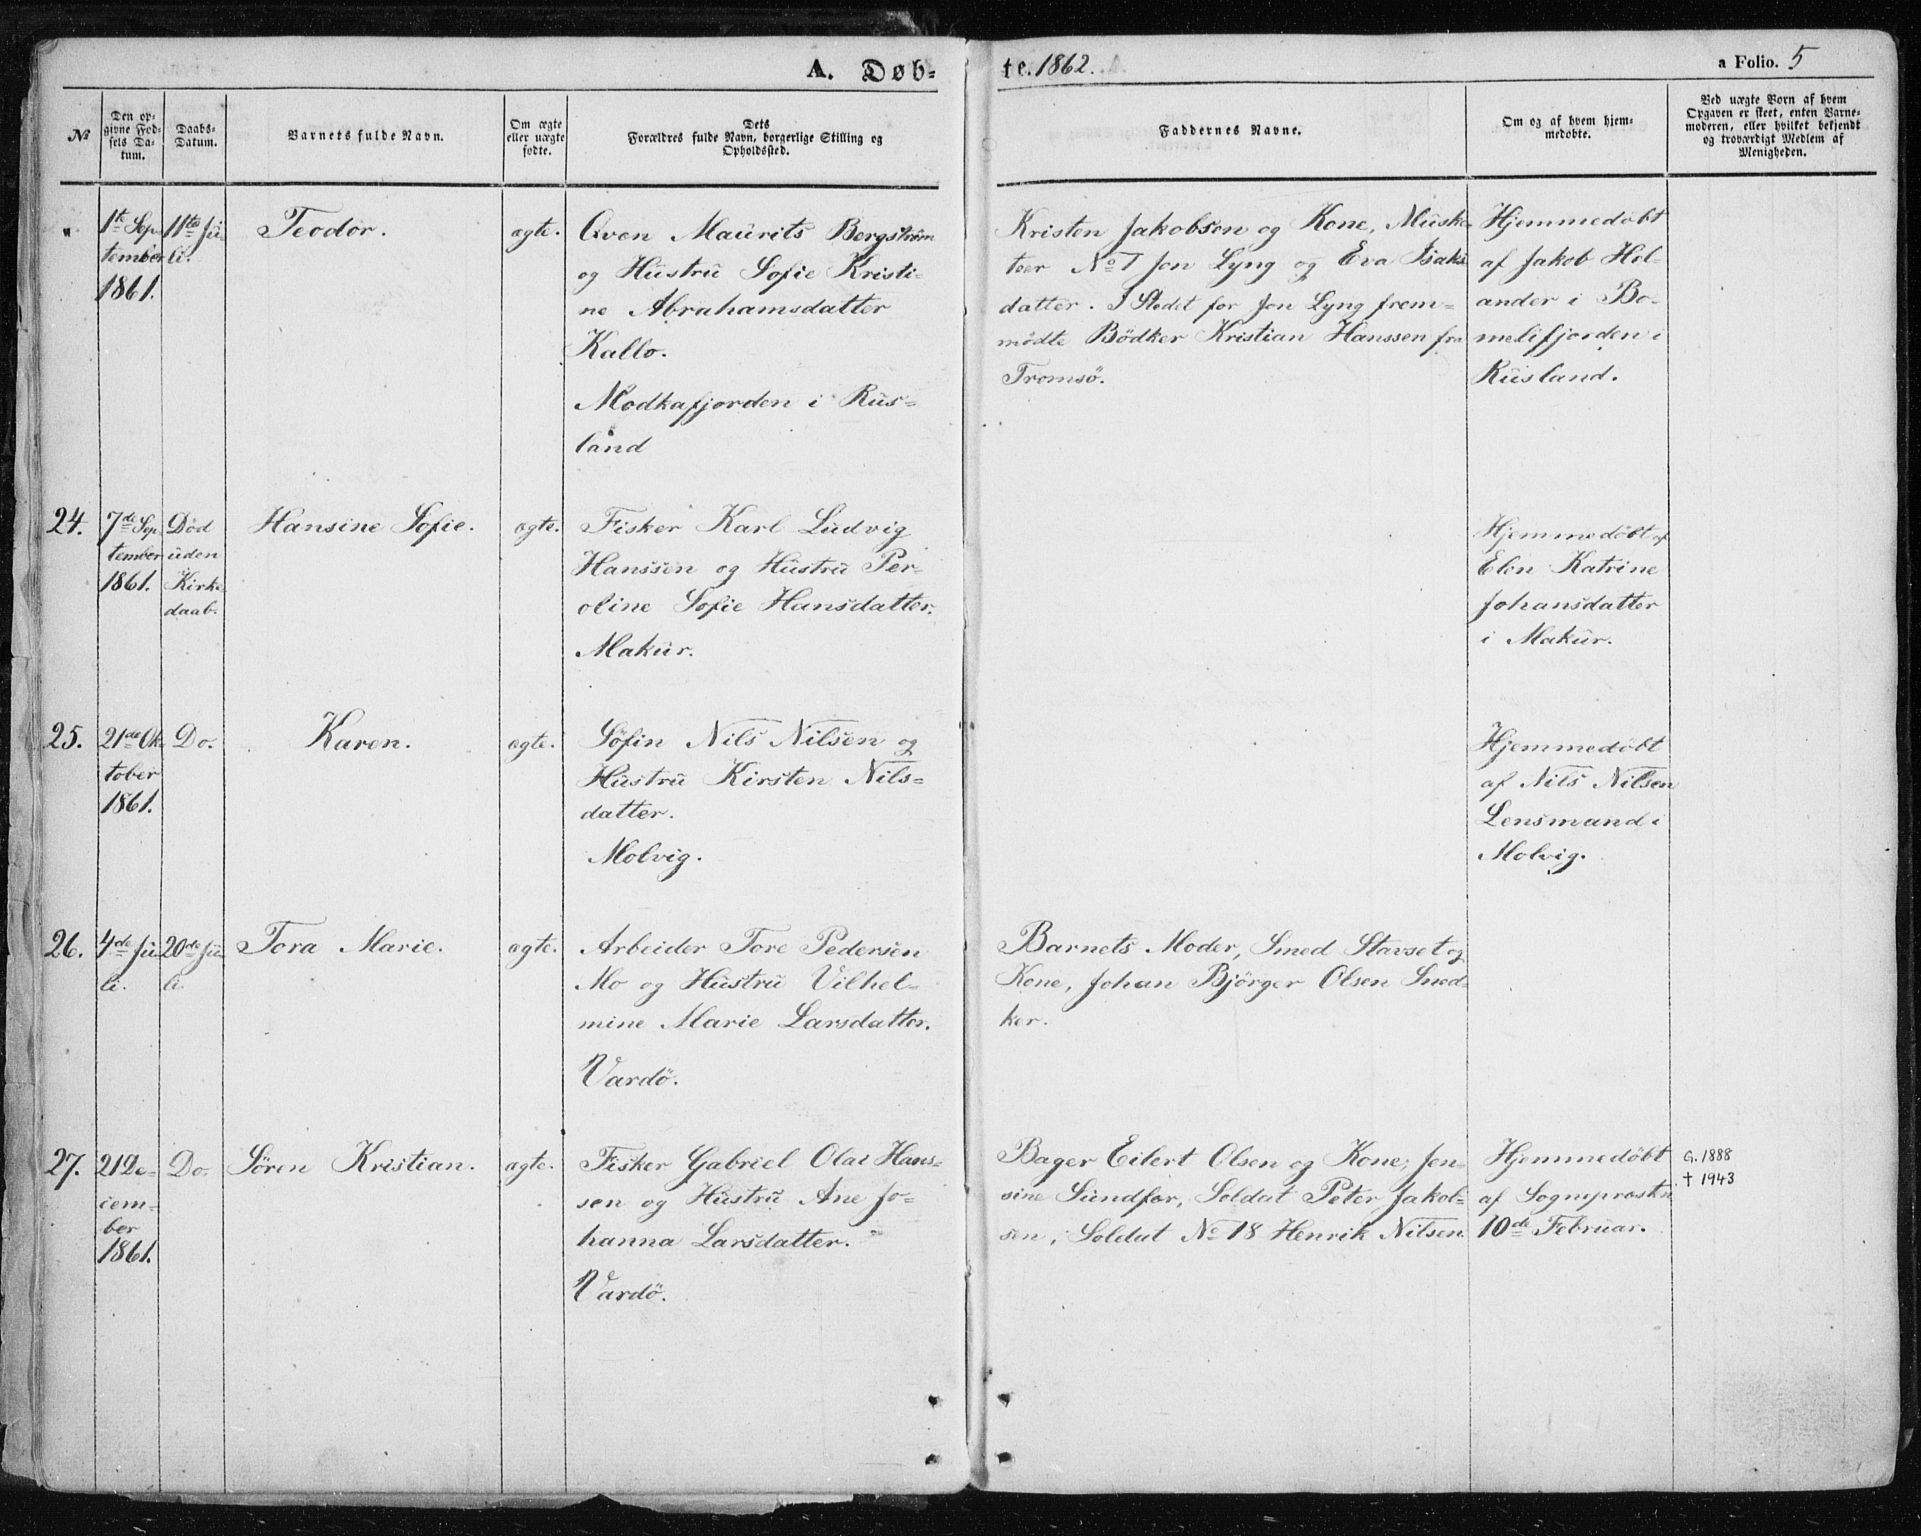 A. Døb-
te. 1862.
a Folio. 5
№
Den op-
givne Fød-
sels Da-
tum.
Daabs-
Datum.
Barnets fulde Navn.
Om ægte
eller uægte
fødte.
Dets
Forældres fulde Navn, borgerlige Stilling og
Opholdssted.
Faddernes Navne.
Om og af hvem hjem-
medøbte.
Ved uægte Børn af hvem
Opgaven er skeet, enten Barne-
moderen, eller hvilket bekjendt
og troværdigt Medlem af
Menigheden.
1te Sep-
tember
1861.
11te Ju-
li.
Teodor.
ægte.
Qven Maurits Bergström
og Hustru Sofie Kristi-
ne Abrahamsdatter
Kallo.
Modkafjorden i Rus-
land
Kristen Jakobsen og Kone, Muske-
teer No 1 Jon Lyng og Eva Isaks
datter. I Stedet for Jon Lyng frem-
mødte Bödker Kristian Hanssen fra
Tromsö.
Hjemmedøbt
af Jakob Hol-
ander i Bo-
melifjorden i
Rusland.
24.
7de Sep
tember
1861.
Død
uden
Kirke
daab.
Hansine Sofie.
ægte.
Fisker Karl Ludvig
Hanssen og Hustru Per-
oline Sofie Hansdatter.
Makur.
Hjemmedøbt af
Elen Katrine
Johansdatter
i Makur.
25.
21de Ok
tober
1861.
Do.
Karen.
ægte.
Söfin Nils Nilsen og
Hustru Kirsten Nils-
datter.
Molvig.
Hjemmedøbt
af Nils Nilsen
Lensmand i
Molvig.
26.
4de Ju
li.
20de Ju
li.
Tora Marie.
ægte.
Arbeider Tore Pedersen
Mo og Hustru Vilhel-
mine Marie Larsdatter.
Vardö.
Barnets Moder, Smed Stavset og
Kone, Johan Bjørger Olsen Sned-
ker.
27.
21 De-
cem-
ber
1861.
Do.
Sören Kristian.
ægte.
Fisker Gabriel Olai Hans-
sen og Hustru Ane Jo-
hanna Larsdatter.
Vardö.
Bager Eilert Olsen og Kone, Jen-
sine Sundfør, Soldat Peter Jakob-
sen, Soldat No 18 Henrik Nilsen.
Hjemmedøbt
af Sognepræsten
10de Februar.
G. 1888
† 1943